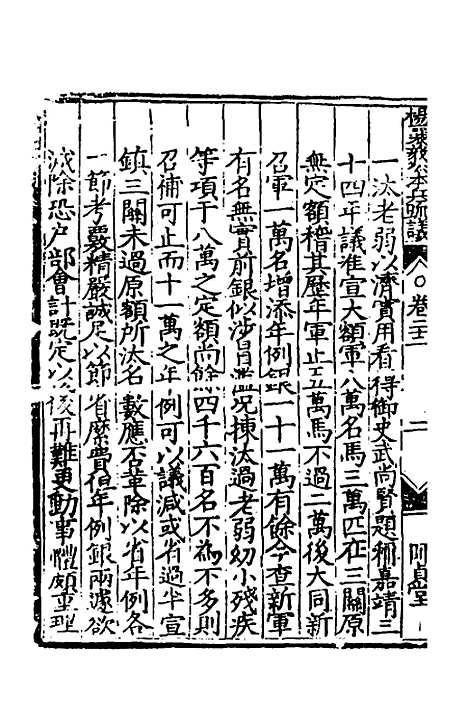 楊襄毅公本兵疏議 卷二十三 二
一汰老弱以濟實用看得御史武尚賢題稱嘉靖三
十四年議准宣大額軍八萬名馬三萬匹在三關原
無定額稽其歷年軍止五萬馬不過二萬後大同新
召軍一萬名增添年例銀一十一萬有餘今查新軍
有名無實前銀似涉冒濫況揀汰過老弱幼小殘疾
等項于八萬之定額尚餘四千六百名不為不多則
召補可止而十一萬之年例可以議減或省過半宣
鎮三關未過原額所汰名數應否革除以省年例各
一節考覈精嚴誠足以節省縻費但年例銀兩遽欲
減除恐戶部會計既定以後再難更動事體頗重理